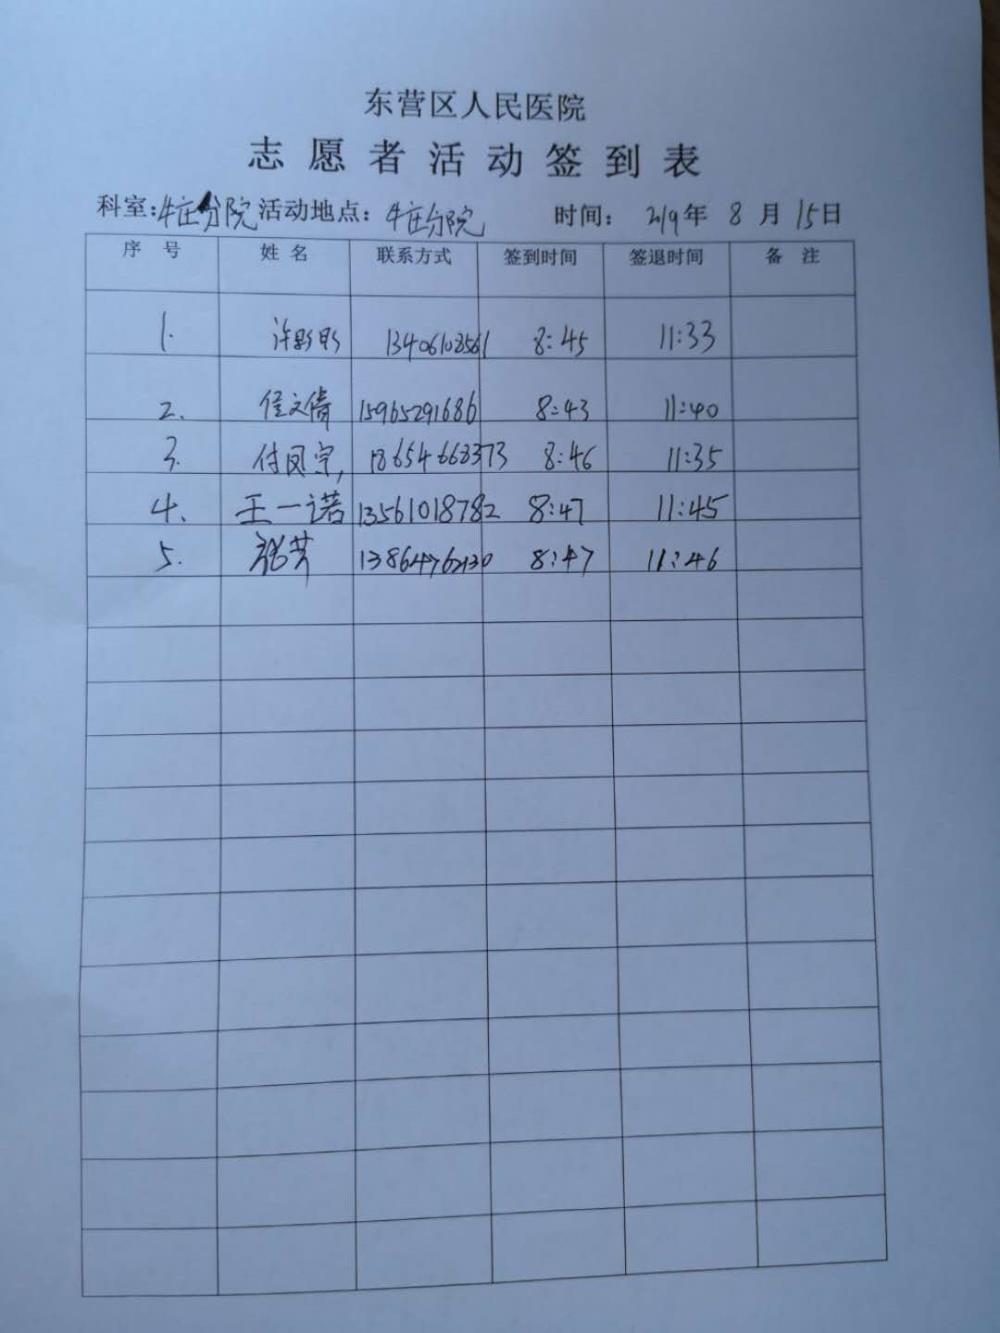 东营区人民医院
志愿者活动签到表
科室:牛庄分院 活动地点:牛庄分院 时间: 219年 8月 15日
序 号 姓 名 联系方式 签到时间 签退时间 备 注
1. 许彤彤 13406108561 8:45 11:33
2. 侯文倩 15965291686 8:43 11:40
3. 付凤宗, 18654668373 8:46 11:35
4. 王一诺 13561018782 8:47 11:45
5. 张芳 8:47 11:46